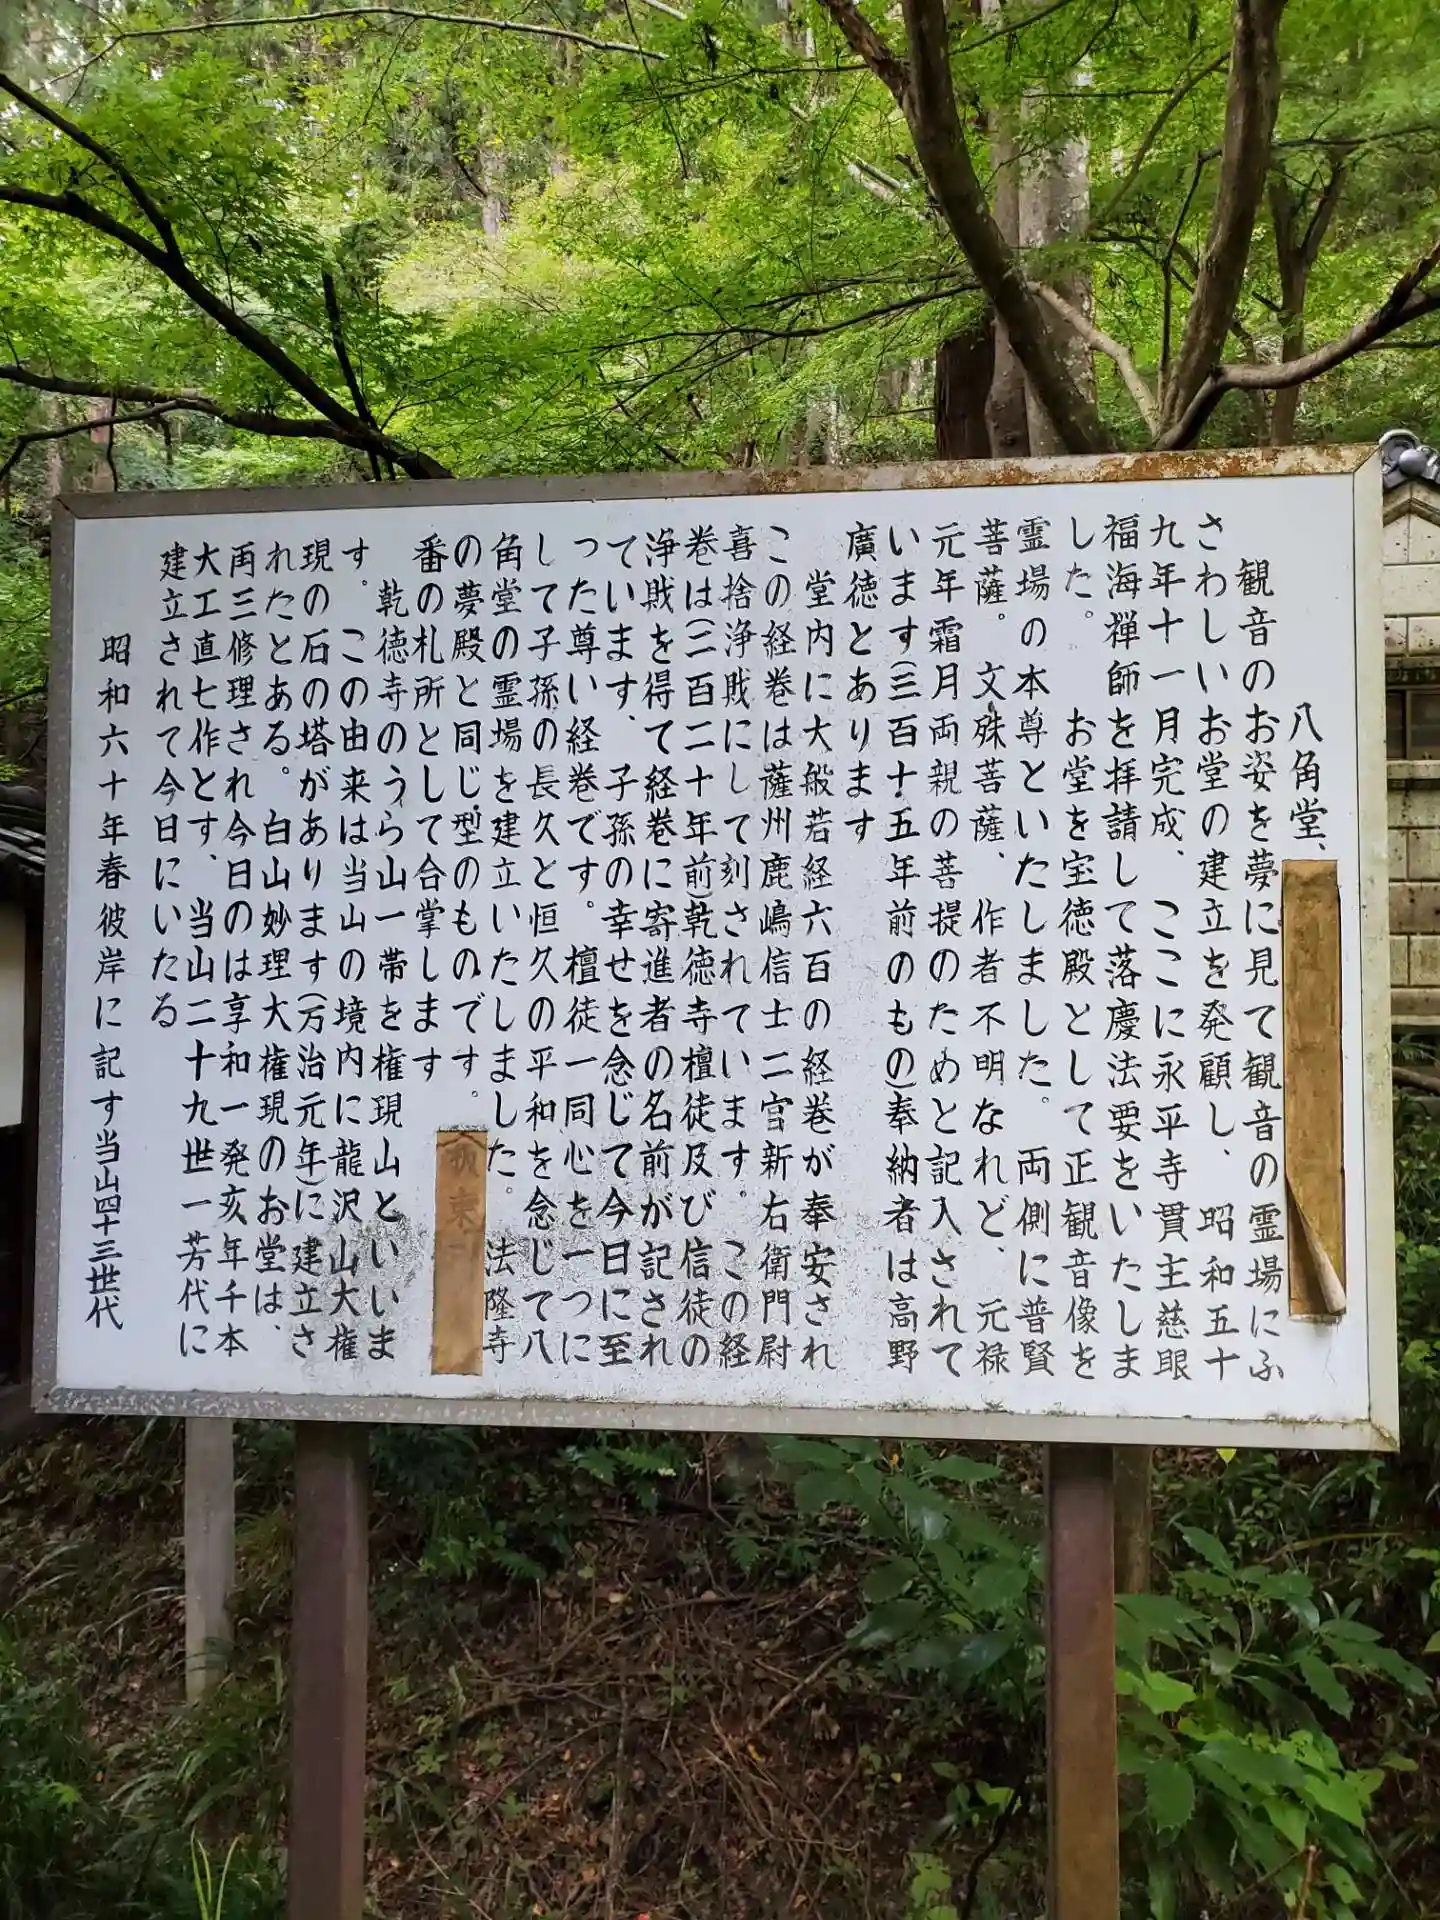 八角堂、
観音のお姿を夢に見て観音の霊場にふ
さわしいお堂の建立を発願し、昭和五十
九年十一月完成、ここに永平寺貫主慈眼
福海禅師を拝請して落慶法要をいたしま
した。　お堂を宝徳殿として正観音像を
霊場の本尊といたしました。両側に普賢
菩薩。　文殊菩薩、作者不明なれど、元禄
元年霜月両親の菩提のためと記入されて
います(三百十五年前のもの)奉納者は高野
廣徳とあります
堂内に大般若経六百の経巻が奉安され
この経巻は薩州鹿嶋信士二宮新右衛門尉
喜捨浄賎にして刻されています。この経
巻は(二百二十年前)乾徳寺檀徒及び信徒の
浄賎を得て経巻に寄進者の名前が記され
ています、子孫の幸せを念じて今日に至
った尊い経巻です。檀徒一同心を一つに
して子孫の長久と恒久の平和を念じて八
角堂の霊場を建立いたしました。法隆寺
の夢殿と同じ型のものです。
番の札所として合掌します
乾徳寺のうら山一帯を権現山といいま
す。この由来は当山の境内に龍沢山大権
現の石の塔があります(万治元年)に建立さ
れたとある。白山妙理大権現のお堂は、
再三修理され今日のは享和一発亥年千本
大工直七作とす、当山二十九世一芳代に
建立されて今日にいたる
昭和六十年春彼岸に記す当山四十三世代